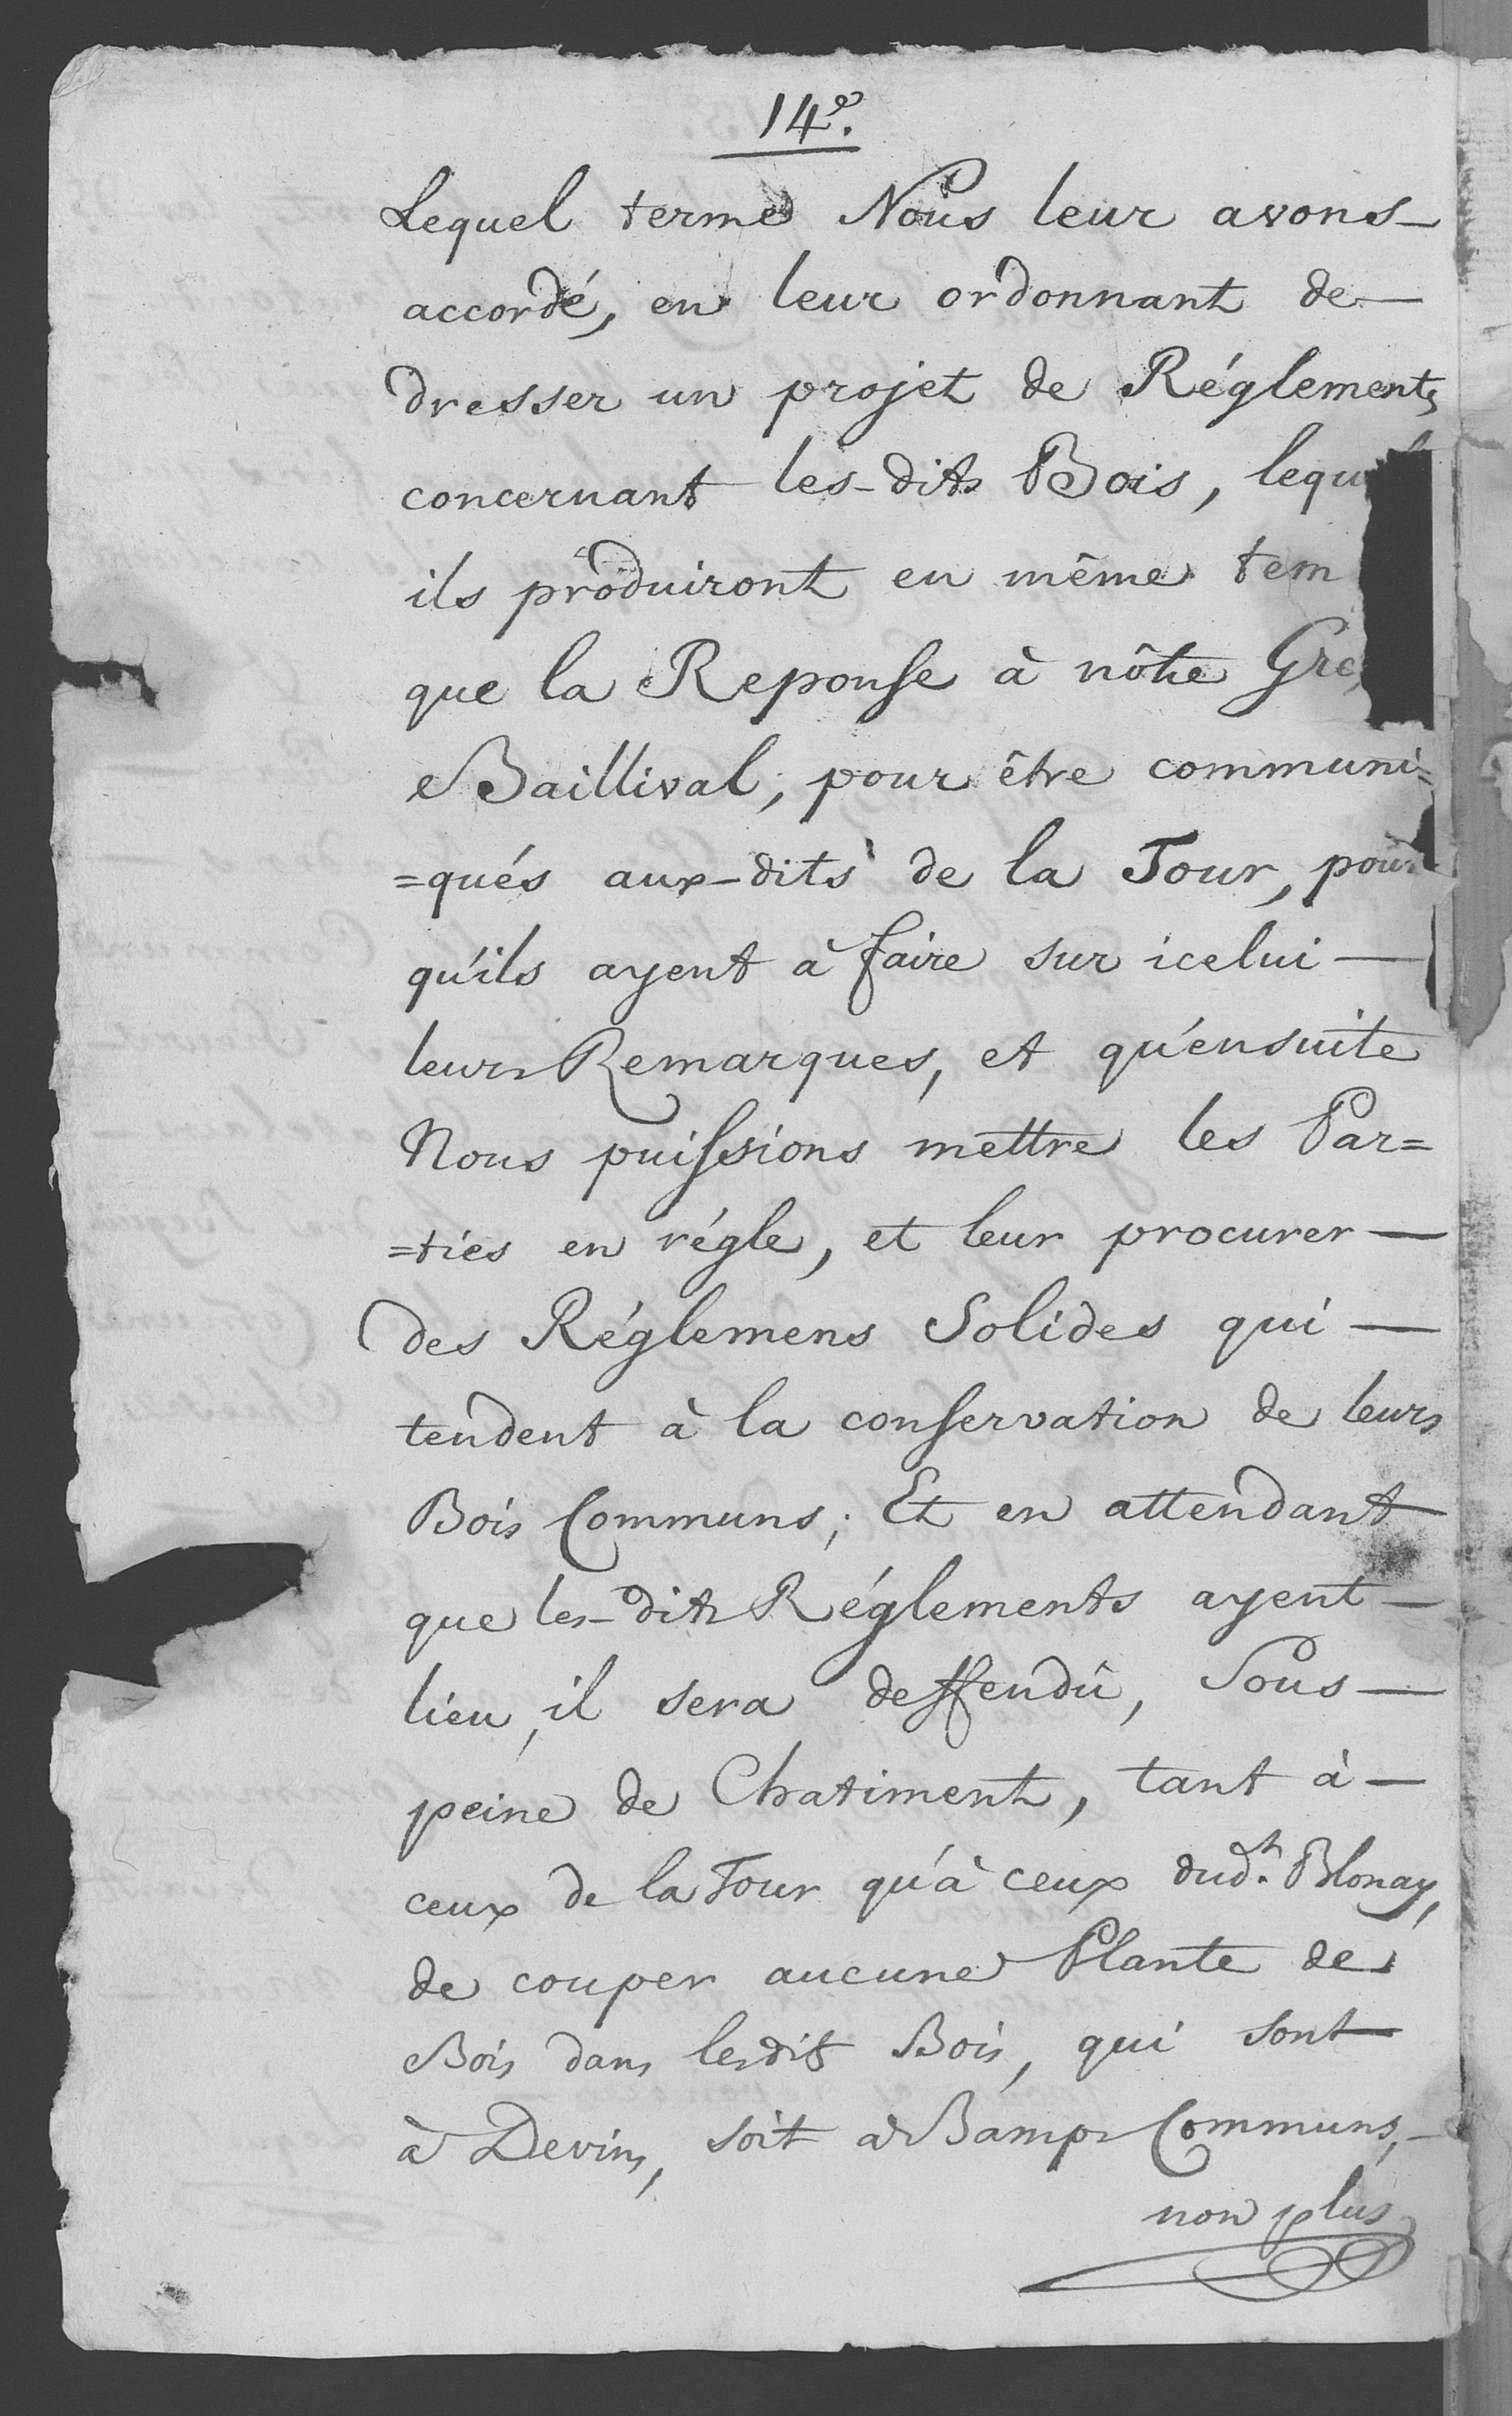 14.e
Lequel terme Nous leur avons
accordé, en leur ordonnant de
dresser un projet de Réglements
concernant les-dits Bois, lequ
ils produiront en même tem
que la Reponse à nôtre Gre
Baillival; pour être communi=
=qués aux-dits de la Tour, pour
qu'ils ayent à faire sur icelui
leurs Remarques, et qu'ensuite
Nous puissions mettre les Par=
=ties en régle, et leur procurer
des Réglemens Solides qui
tendent à la conservation de leurs
Bois Communs; Et en attendant
que les-dits Réglements ayent
lieu, il sera deffendû, Sous
peine de Chatiment, tant à
ceux de la Tour qu'à ceux dud.t Blonay,
de couper aucune Plante de
Bois dans lesdits Bois, qui sont
à Devins, soit à Bamps Communs,
non plus